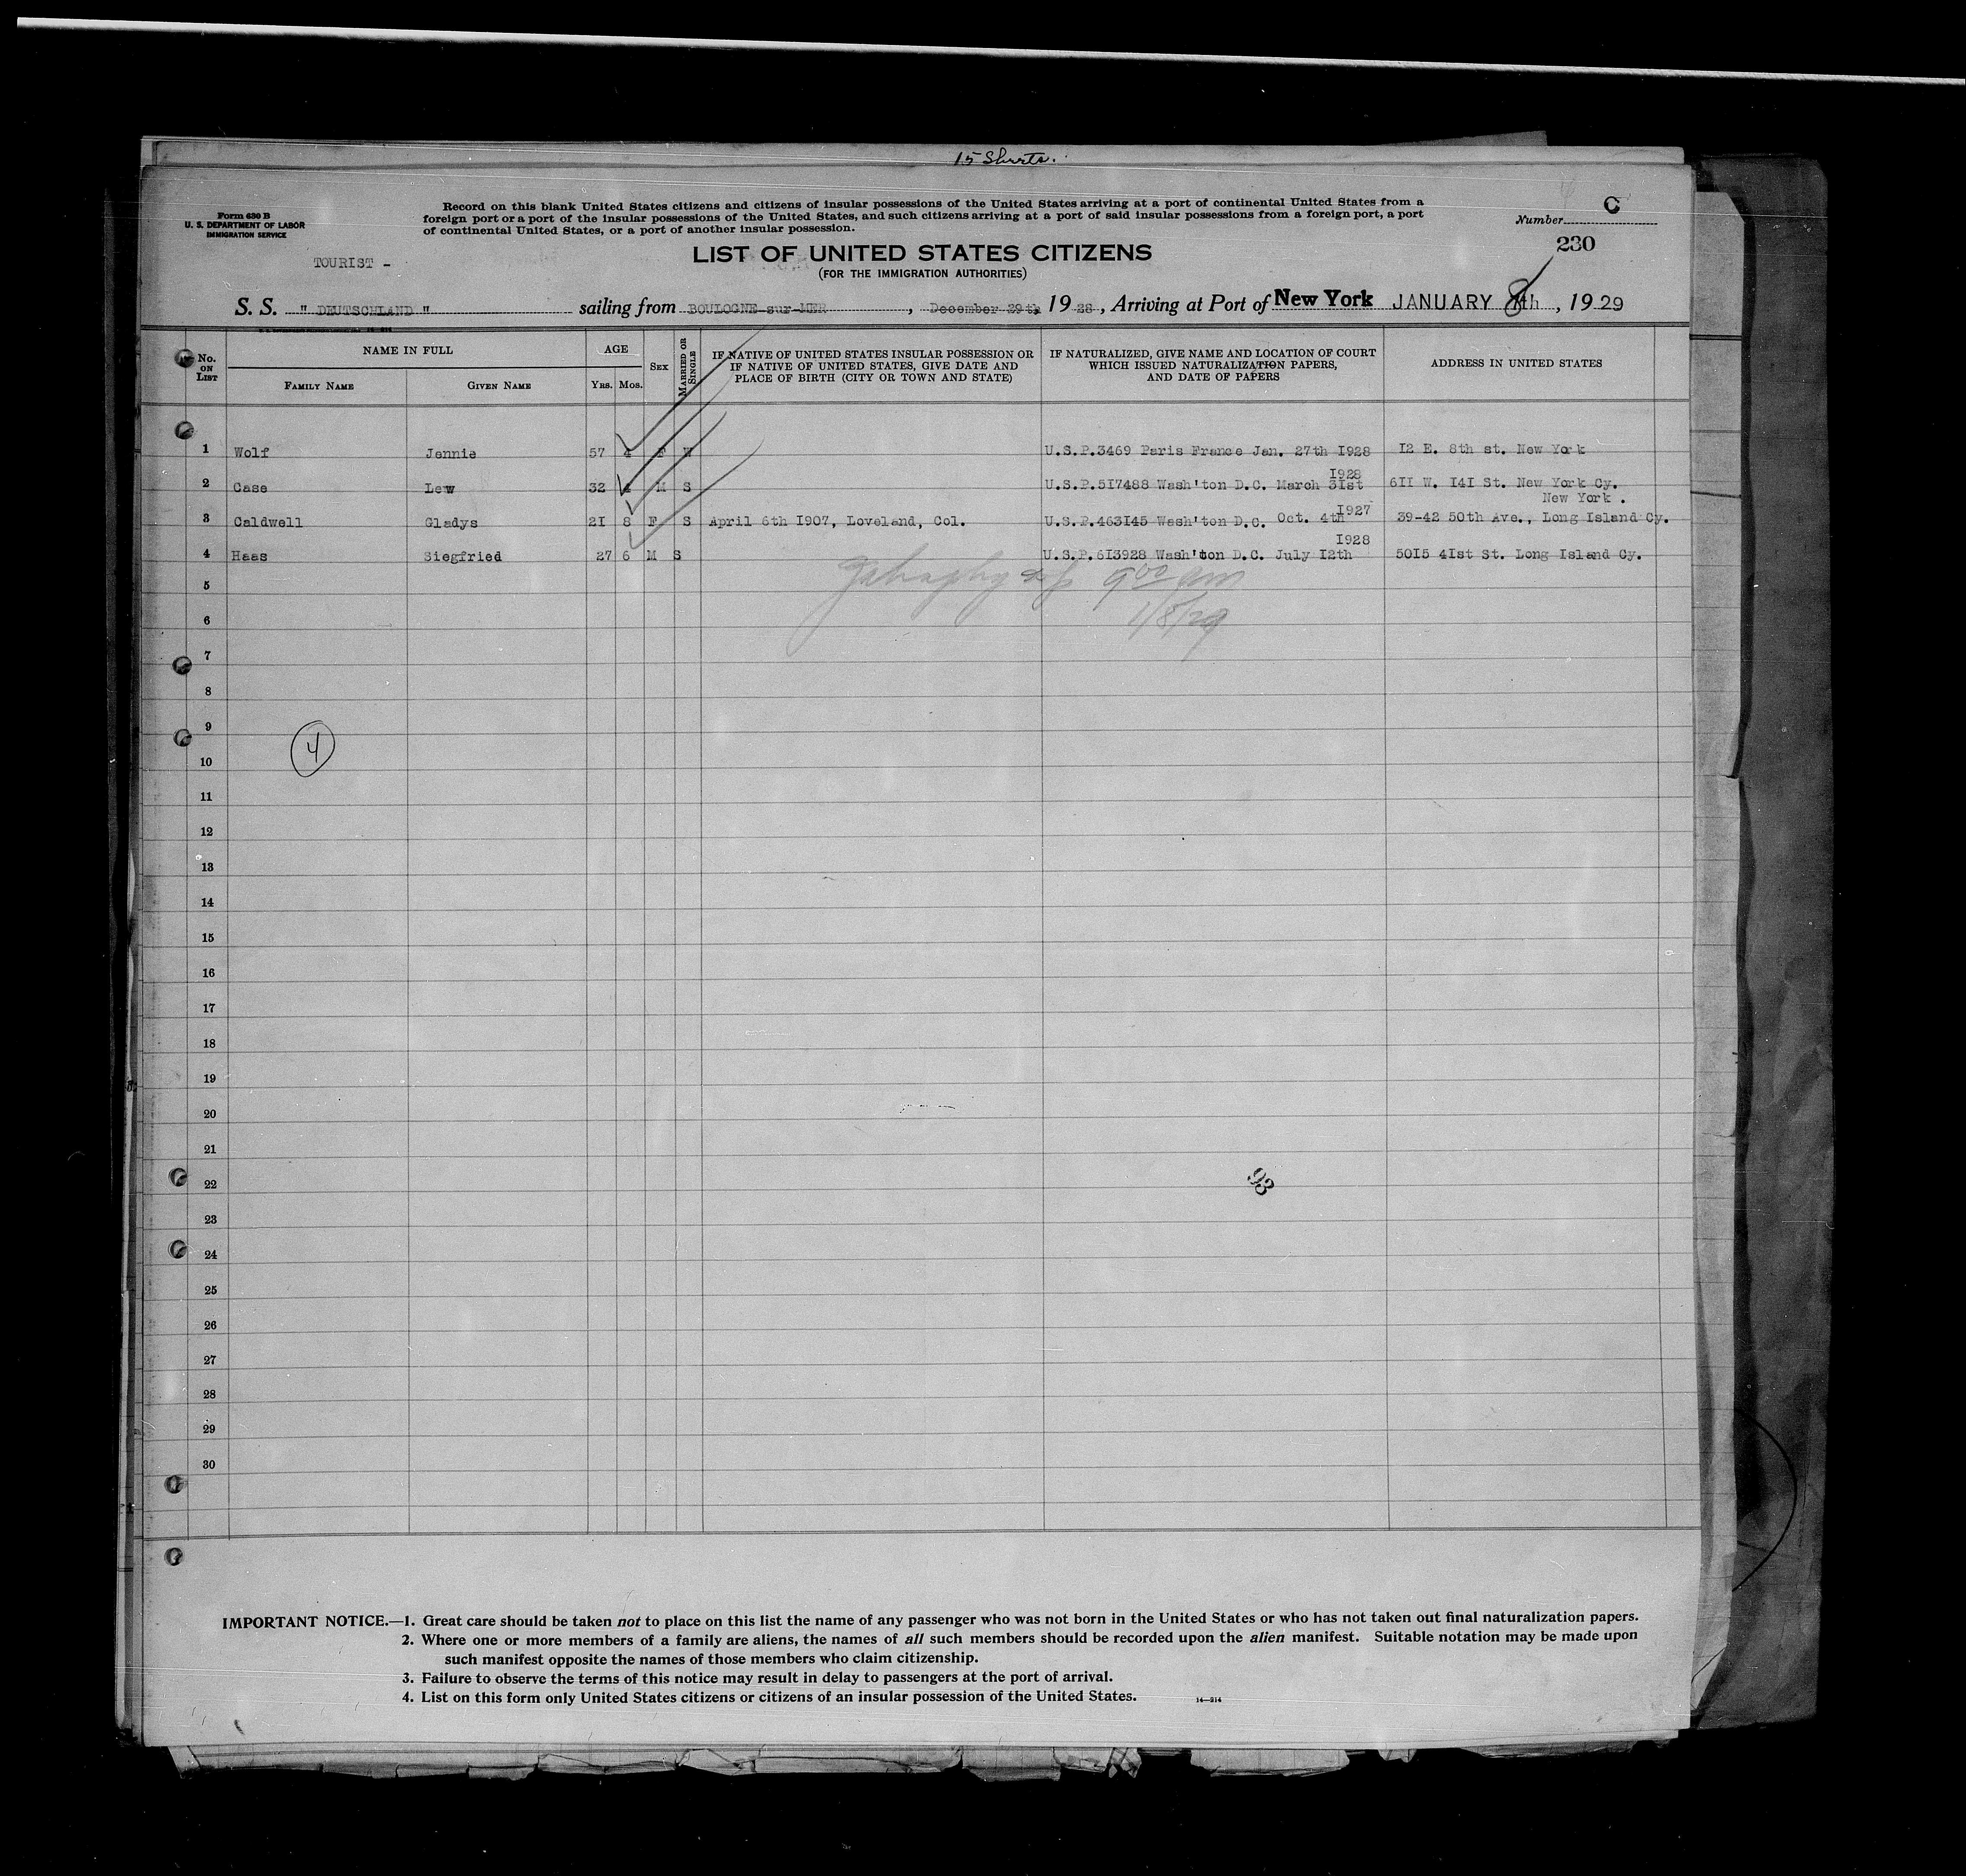 15 Sheets.
Form 630 B
U. S. DEPARTMENT OF LABOR
IMMIGRATION SERVICE
Record on this blank United States citizens and citizens of insular possessions of the United States arriving at a port of continental United States from a
foreign port or a port of the insular possessions of the United States, and such citizens arriving at a port of said insular possessions from a foreign port, a port
of continental United States, or a port of another insular possession.
Number C
230
TOURIST -
LIST OF UNITED STATES CITIZENS
(FOR THE IMMIGRATION AUTHORITIES)
S. S. " DEUTSCHLAND " sailing from BOULOGNE-sur-MER, December 29th, 19 28, Arriving at Port of New York JANUARY 8th, 1929
No. ON LIST
NAME IN FULL
FAMILY NAME
GIVEN NAME
AGE
YRS.
MOS.
SEX
MARRIED OR SINGLE
IF NATIVE OF UNITED STATES INSULAR POSSESSION OR
IF NATIVE OF UNITED STATES, GIVE DATE AND
PLACE OF BIRTH (CITY OR TOWN AND STATE)
IF NATURALIZED, GIVE NAME AND LOCATION OF COURT
WHICH ISSUED NATURALIZATION PAPERS,
AND DATE OF PAPERS
ADDRESS IN UNITED STATES
1 Wolf Jennie 57 4 F W U.S.P.3469 Paris France Jan. 27th I928 I2 E. 8th st. New York
2 Case Lew 32 4 M S U.S.P.5I7488 Wash'ton D.C. March 3Ist I928 6II W. I4I St. New York Cy.
New York .
3 Caldwell Gladys 2I 8 F S April 6th I907, Loveland, Col. U.S.P.463I45 Wash'ton D.C. Oct. 4th I927 39-42 50th Ave., Long Island Cy.
4 Haas Siegfried 27 6 M S U.S.P.6I3928 Wash'ton D.C. July I2th I928 50I5 4Ist St. Long Island Cy.
9 00 am
1/8/29
5
6
7
8
9
4
10
11
12
13
14
15
16
17
18
19
20
21
22
93
23
24
25
26
27
28
29
30
IMPORTANT NOTICE.—1. Great care should be taken not to place on this list the name of any passenger who was not born in the United States or who has not taken out final naturalization papers.
2. Where one or more members of a family are aliens, the names of all such members should be recorded upon the alien manifest. Suitable notation may be made upon
such manifest opposite the names of those members who claim citizenship.
3. Failure to observe the terms of this notice may result in delay to passengers at the port of arrival.
4. List on this form only United States citizens or citizens of an insular possession of the United States.
14—214